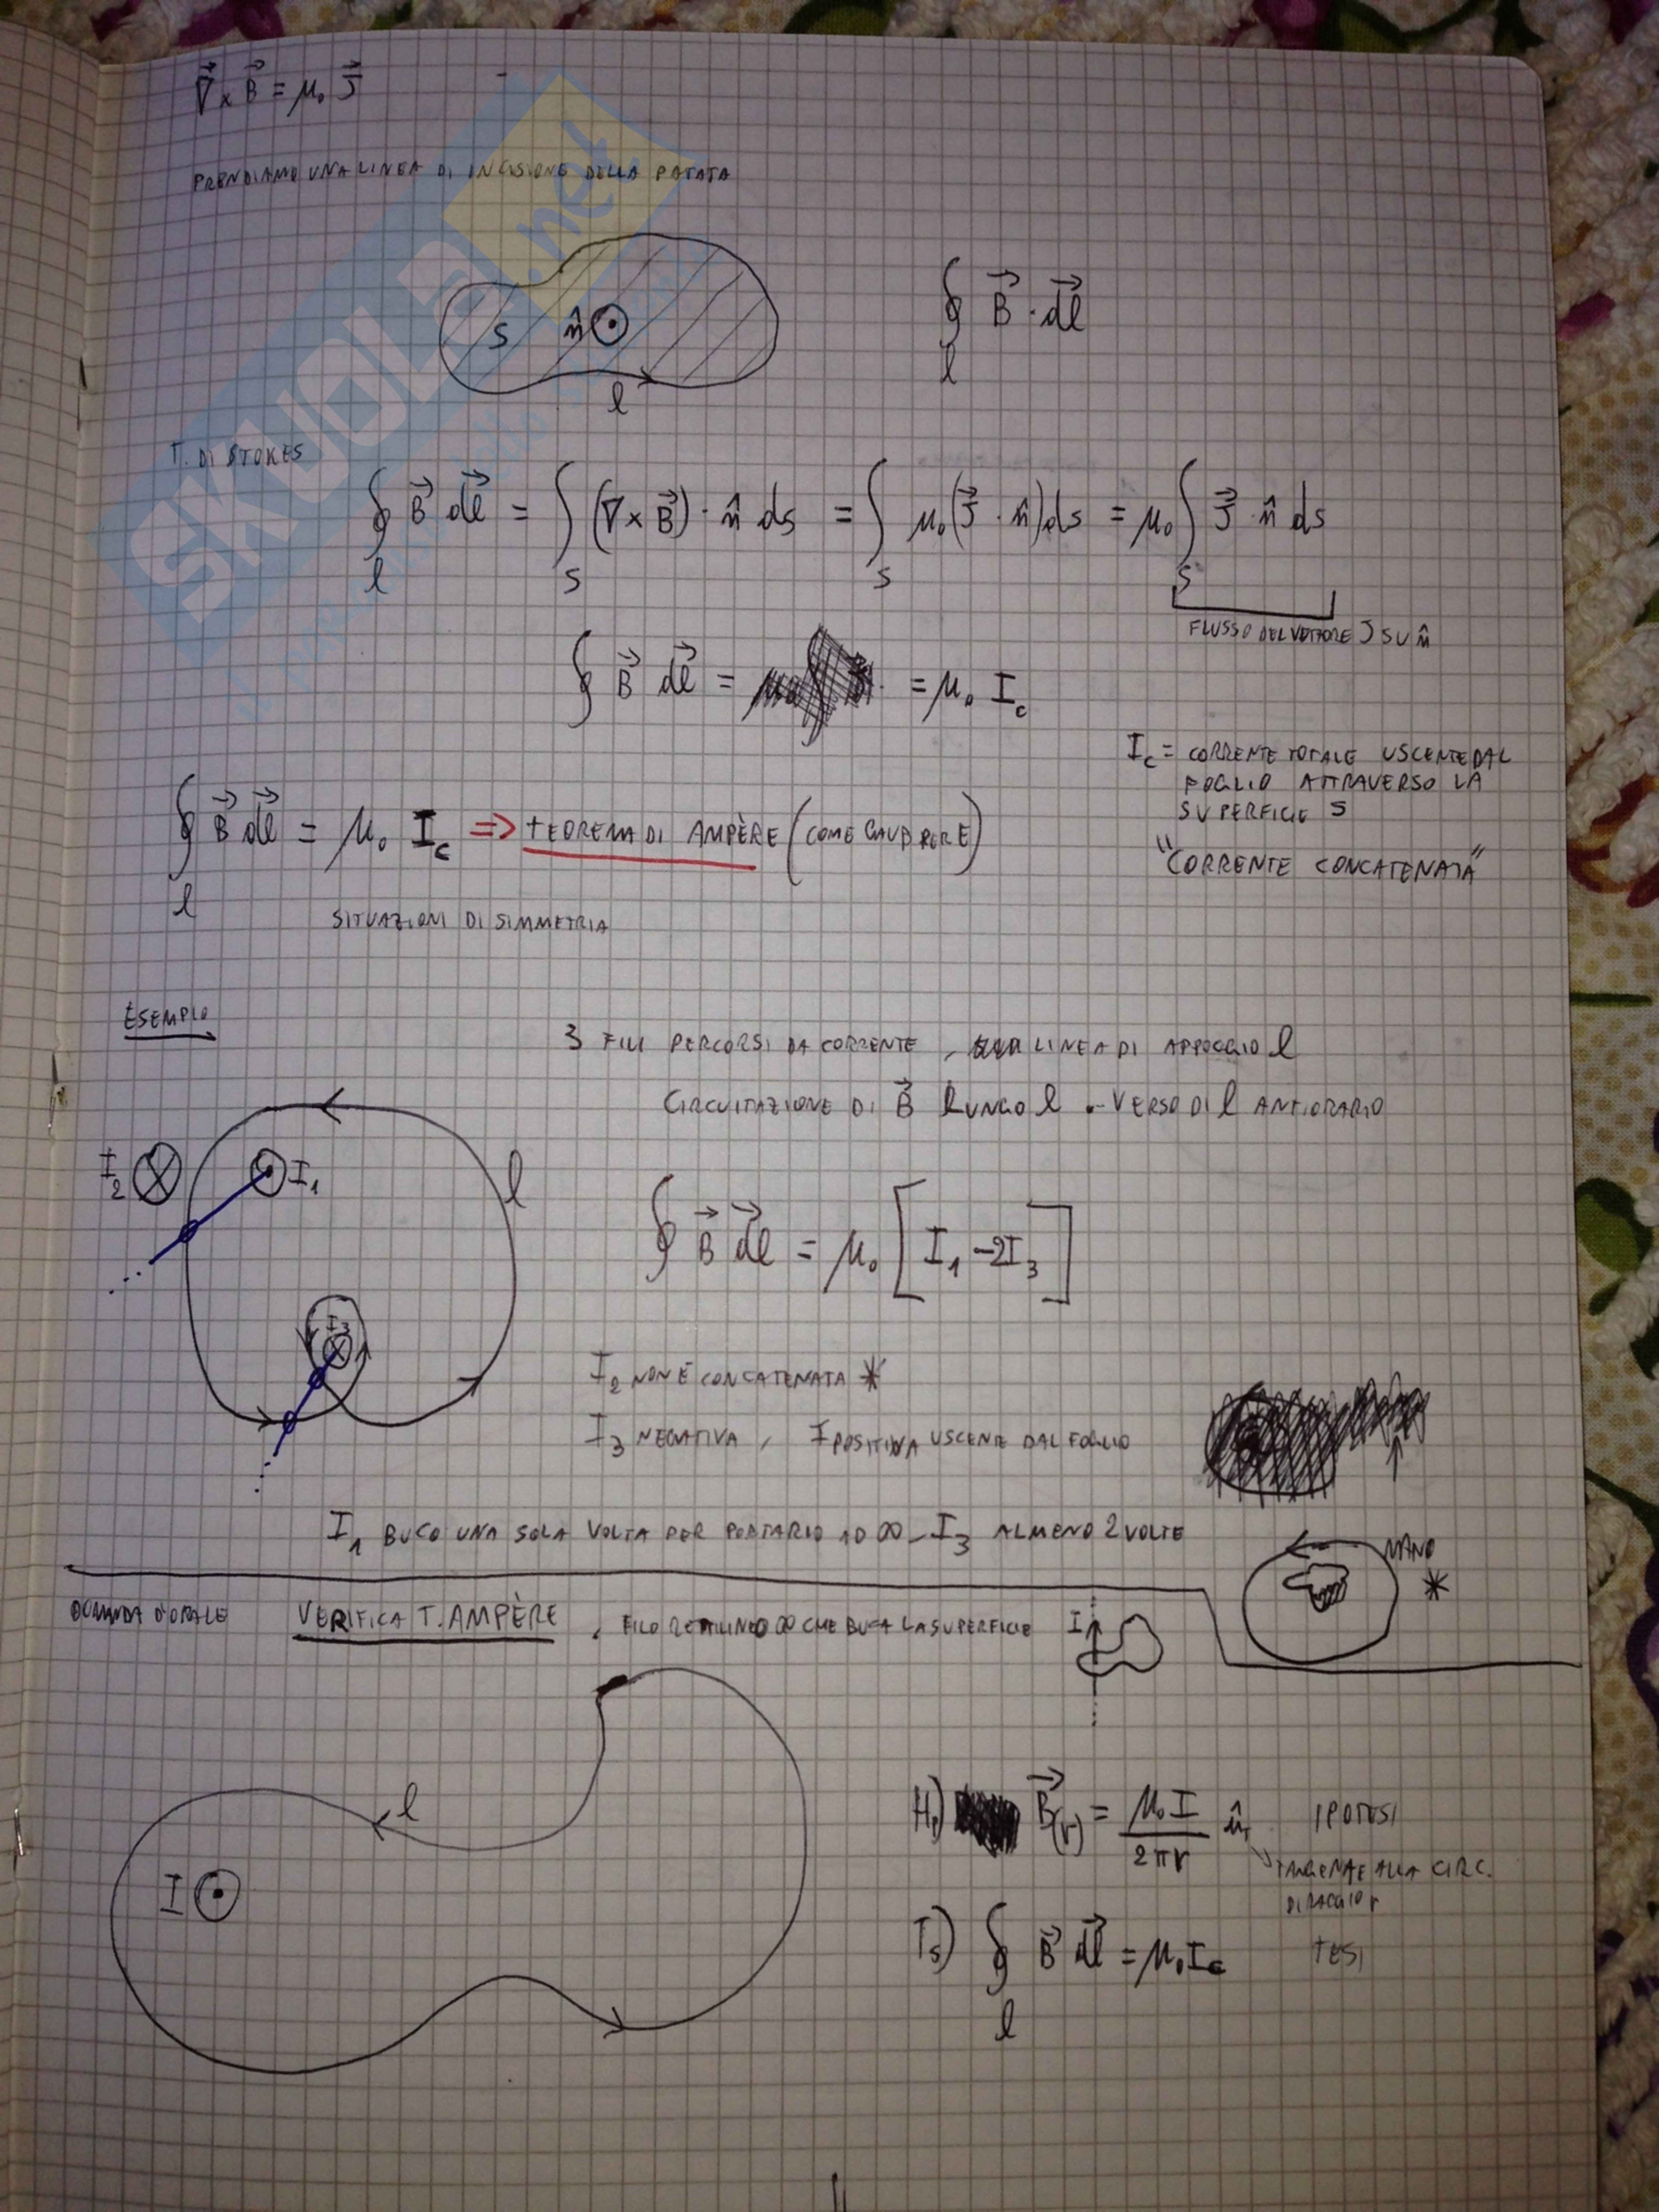 ∇⃗ × B⃗ = μ₀ J⃗
PRENDIAMO UNA LINEA DI INCISIONE DELLA PATATA
S n̂ ⊙ l
∮ₗ B⃗ · dl⃗
T. DI STOKES
∮ₗ B⃗ dl⃗ = ∫ₛ (∇ × B⃗) · n̂ ds = ∫ₛ μ₀ (J⃗ · n̂) ds = μ₀ ∫ₛ J⃗ · n̂ ds
FLUSSO DEL VETTORE J SU n̂
∮ B⃗ dl⃗ = = μ₀ I_c
I_c = CORRENTE TOTALE USCENTE DAL
FOGLIO ATTRAVERSO LA
SUPERFICIE S
"CORRENTE CONCATENATA"
∮ₗ B⃗ dl⃗ = μ₀ I_c ⇒ TEOREMA DI AMPÈRE (COME GAUß PER E)
SITUAZIONI DI SIMMETRIA
ESEMPIO
3 FILI PERCORSI DA CORRENTE, LINEA DI APPOGGIO l
CIRCUITAZIONE DI B⃗ LUNGO l - VERSO DI l ANTIORARIO
I₂ ⊗ ⊙ I₁ l
I₃ ⊗
∮ B⃗ dl⃗ = μ₀ [I₁ - 2I₃]
I₂ NON È CONCATENATA *
I₃ NEGATIVA, I POSITIVA USCENTE DAL FOGLIO
I₁ BUCO UNA SOLA VOLTA PER PORTARLO AD ∞ - I₃ ALMENO 2 VOLTE
MANO *
DOMANDA D'ORALE VERIFICA T. AMPÈRE, FILO RETTILINEO ∞ CHE BUCA LA SUPERFICIE I
l
I ⊙
Hp) B⃗(r) = μ₀ I / 2πr û_t IPOTESI
TANGENTE ALLA CIRC.
DI RAGGIO r
Ts) ∮ₗ B⃗ dl⃗ = μ₀ I_c TESI
SKUOLA.net